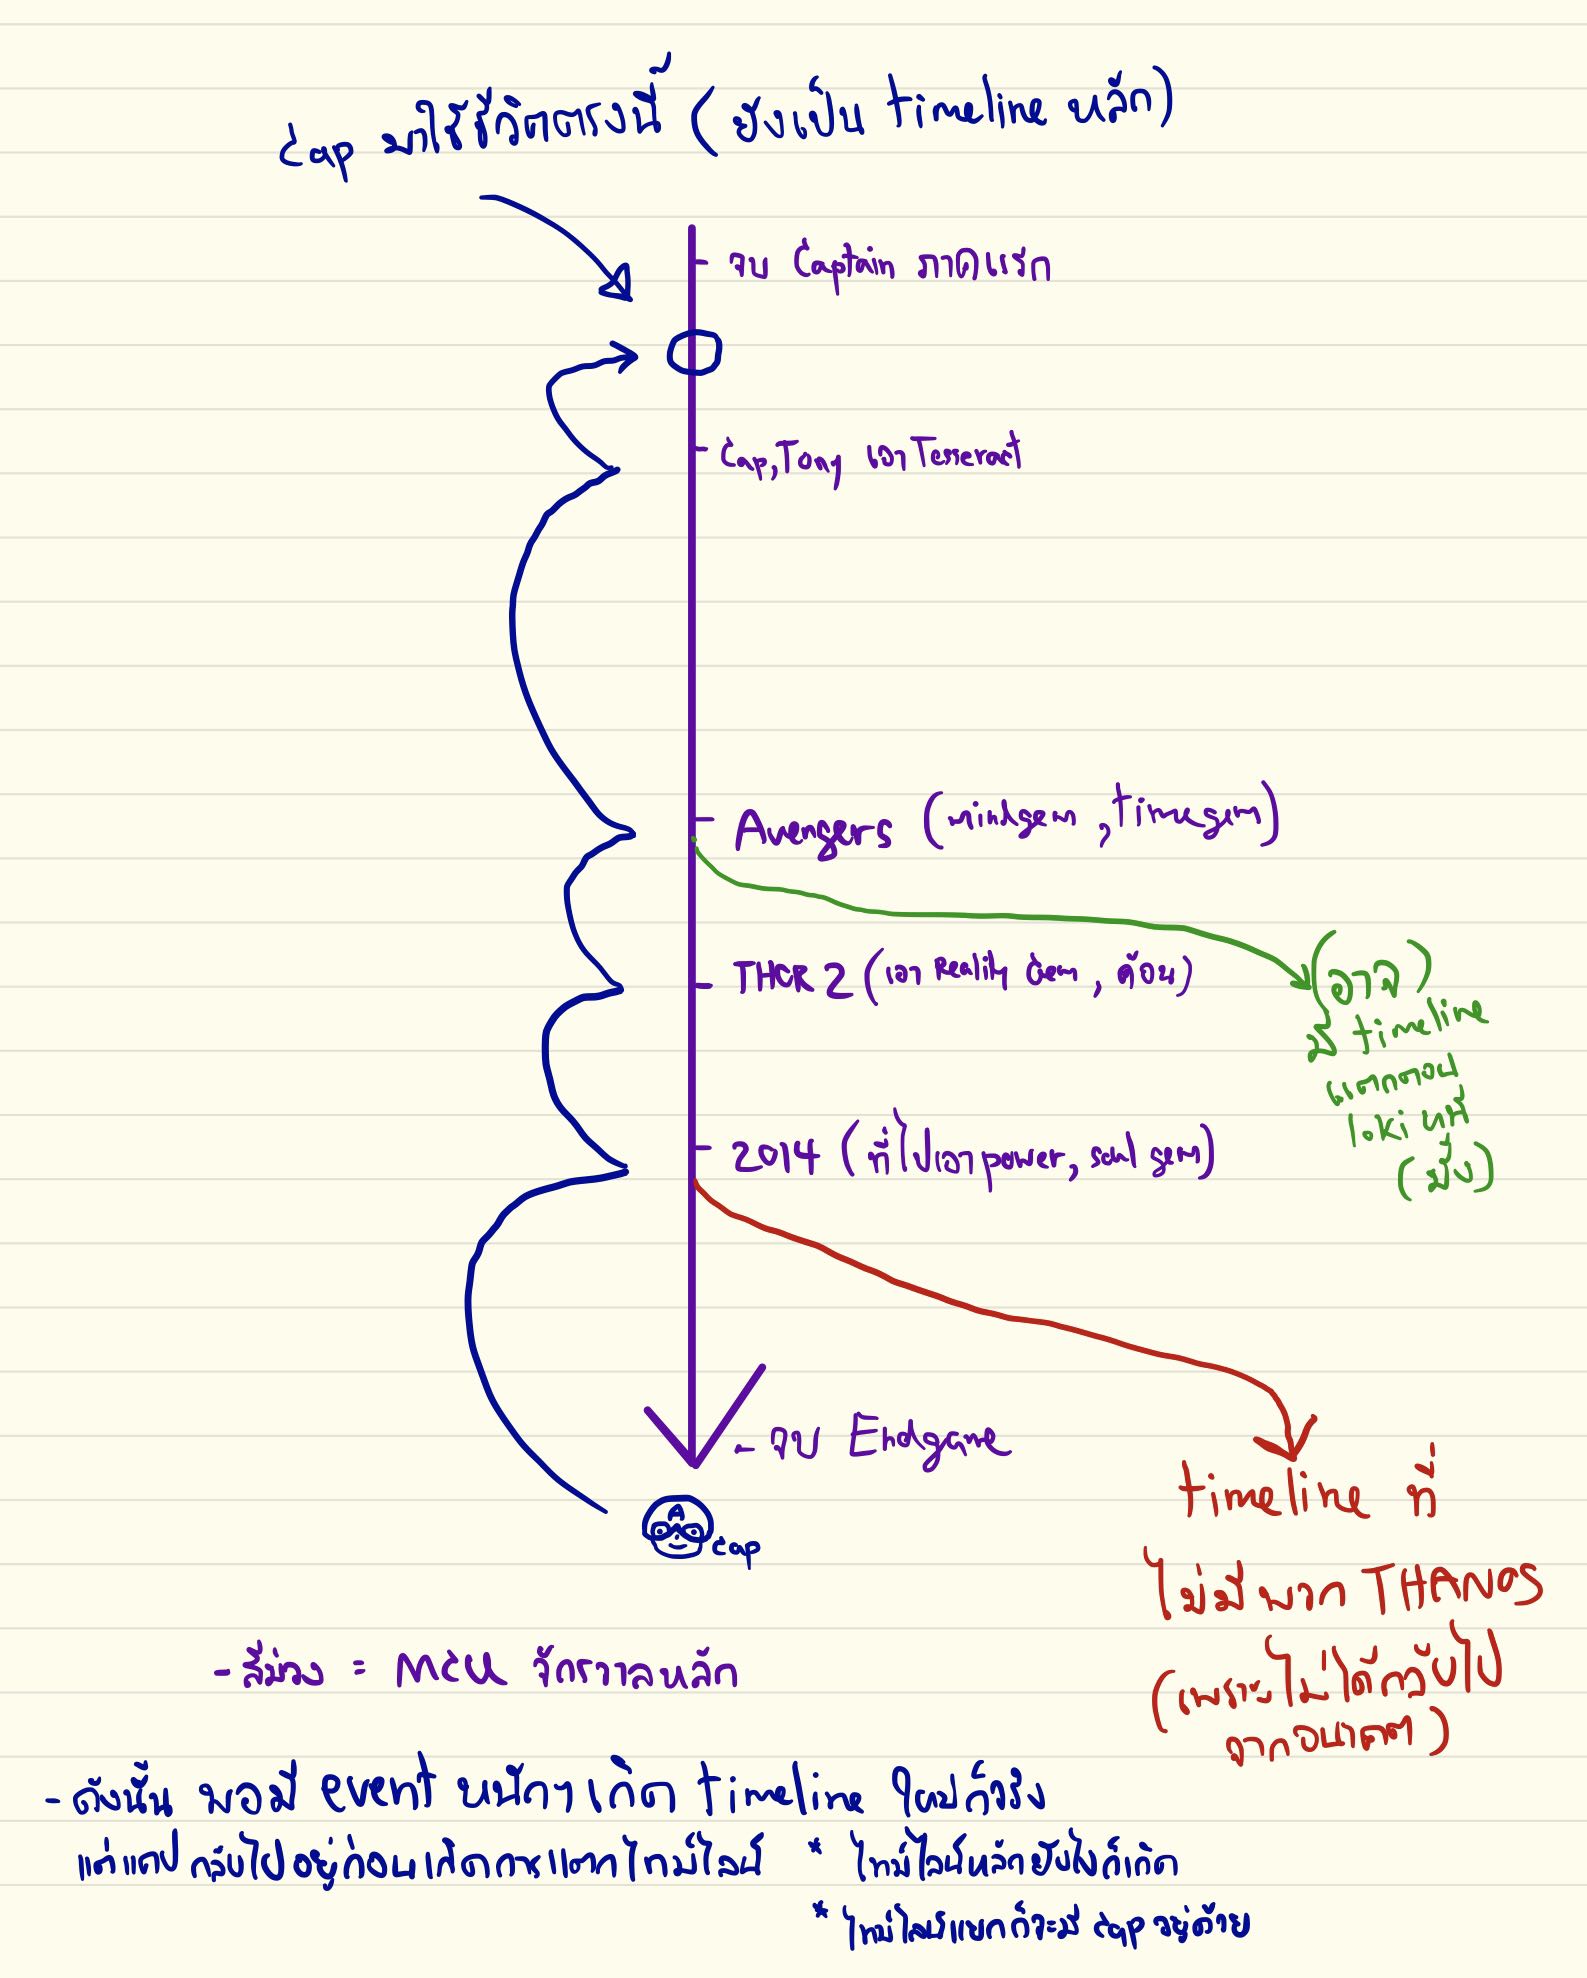 Cap มาใช้ชีวิตตรงนี้ (ยังเป็น timeline หลัก)
- จบ Captain ภาคแรก
- Cap, Tony เอา Tesseract
- Avengers (mindgem, timegem)
- THOR 2 (เอา Reality Gem, ค้อน)
(อาจ)
มี timeline
แตกตอน
loki หนี
(มั้ง)
- 2014 (ที่ไปเอา power, soul gem)
- จบ Endgame
A
cap
timeline ที่
ไม่มีพวก THANOS
(เพราะไม่ได้กลับไป
จากอนาคต)
- สีม่วง = MCU จักรวาลหลัก
- ดังนั้น พอมี event หนักๆ เกิด timeline ใหม่ก็จริง
แต่แคป กลับไปอยู่ก่อนเกิดการแตกไทม์ไลน์ * ไทม์ไลน์หลักยังไงก็เกิด
* ไทม์ไลน์แยกก็จะมี cap อยู่ด้วย